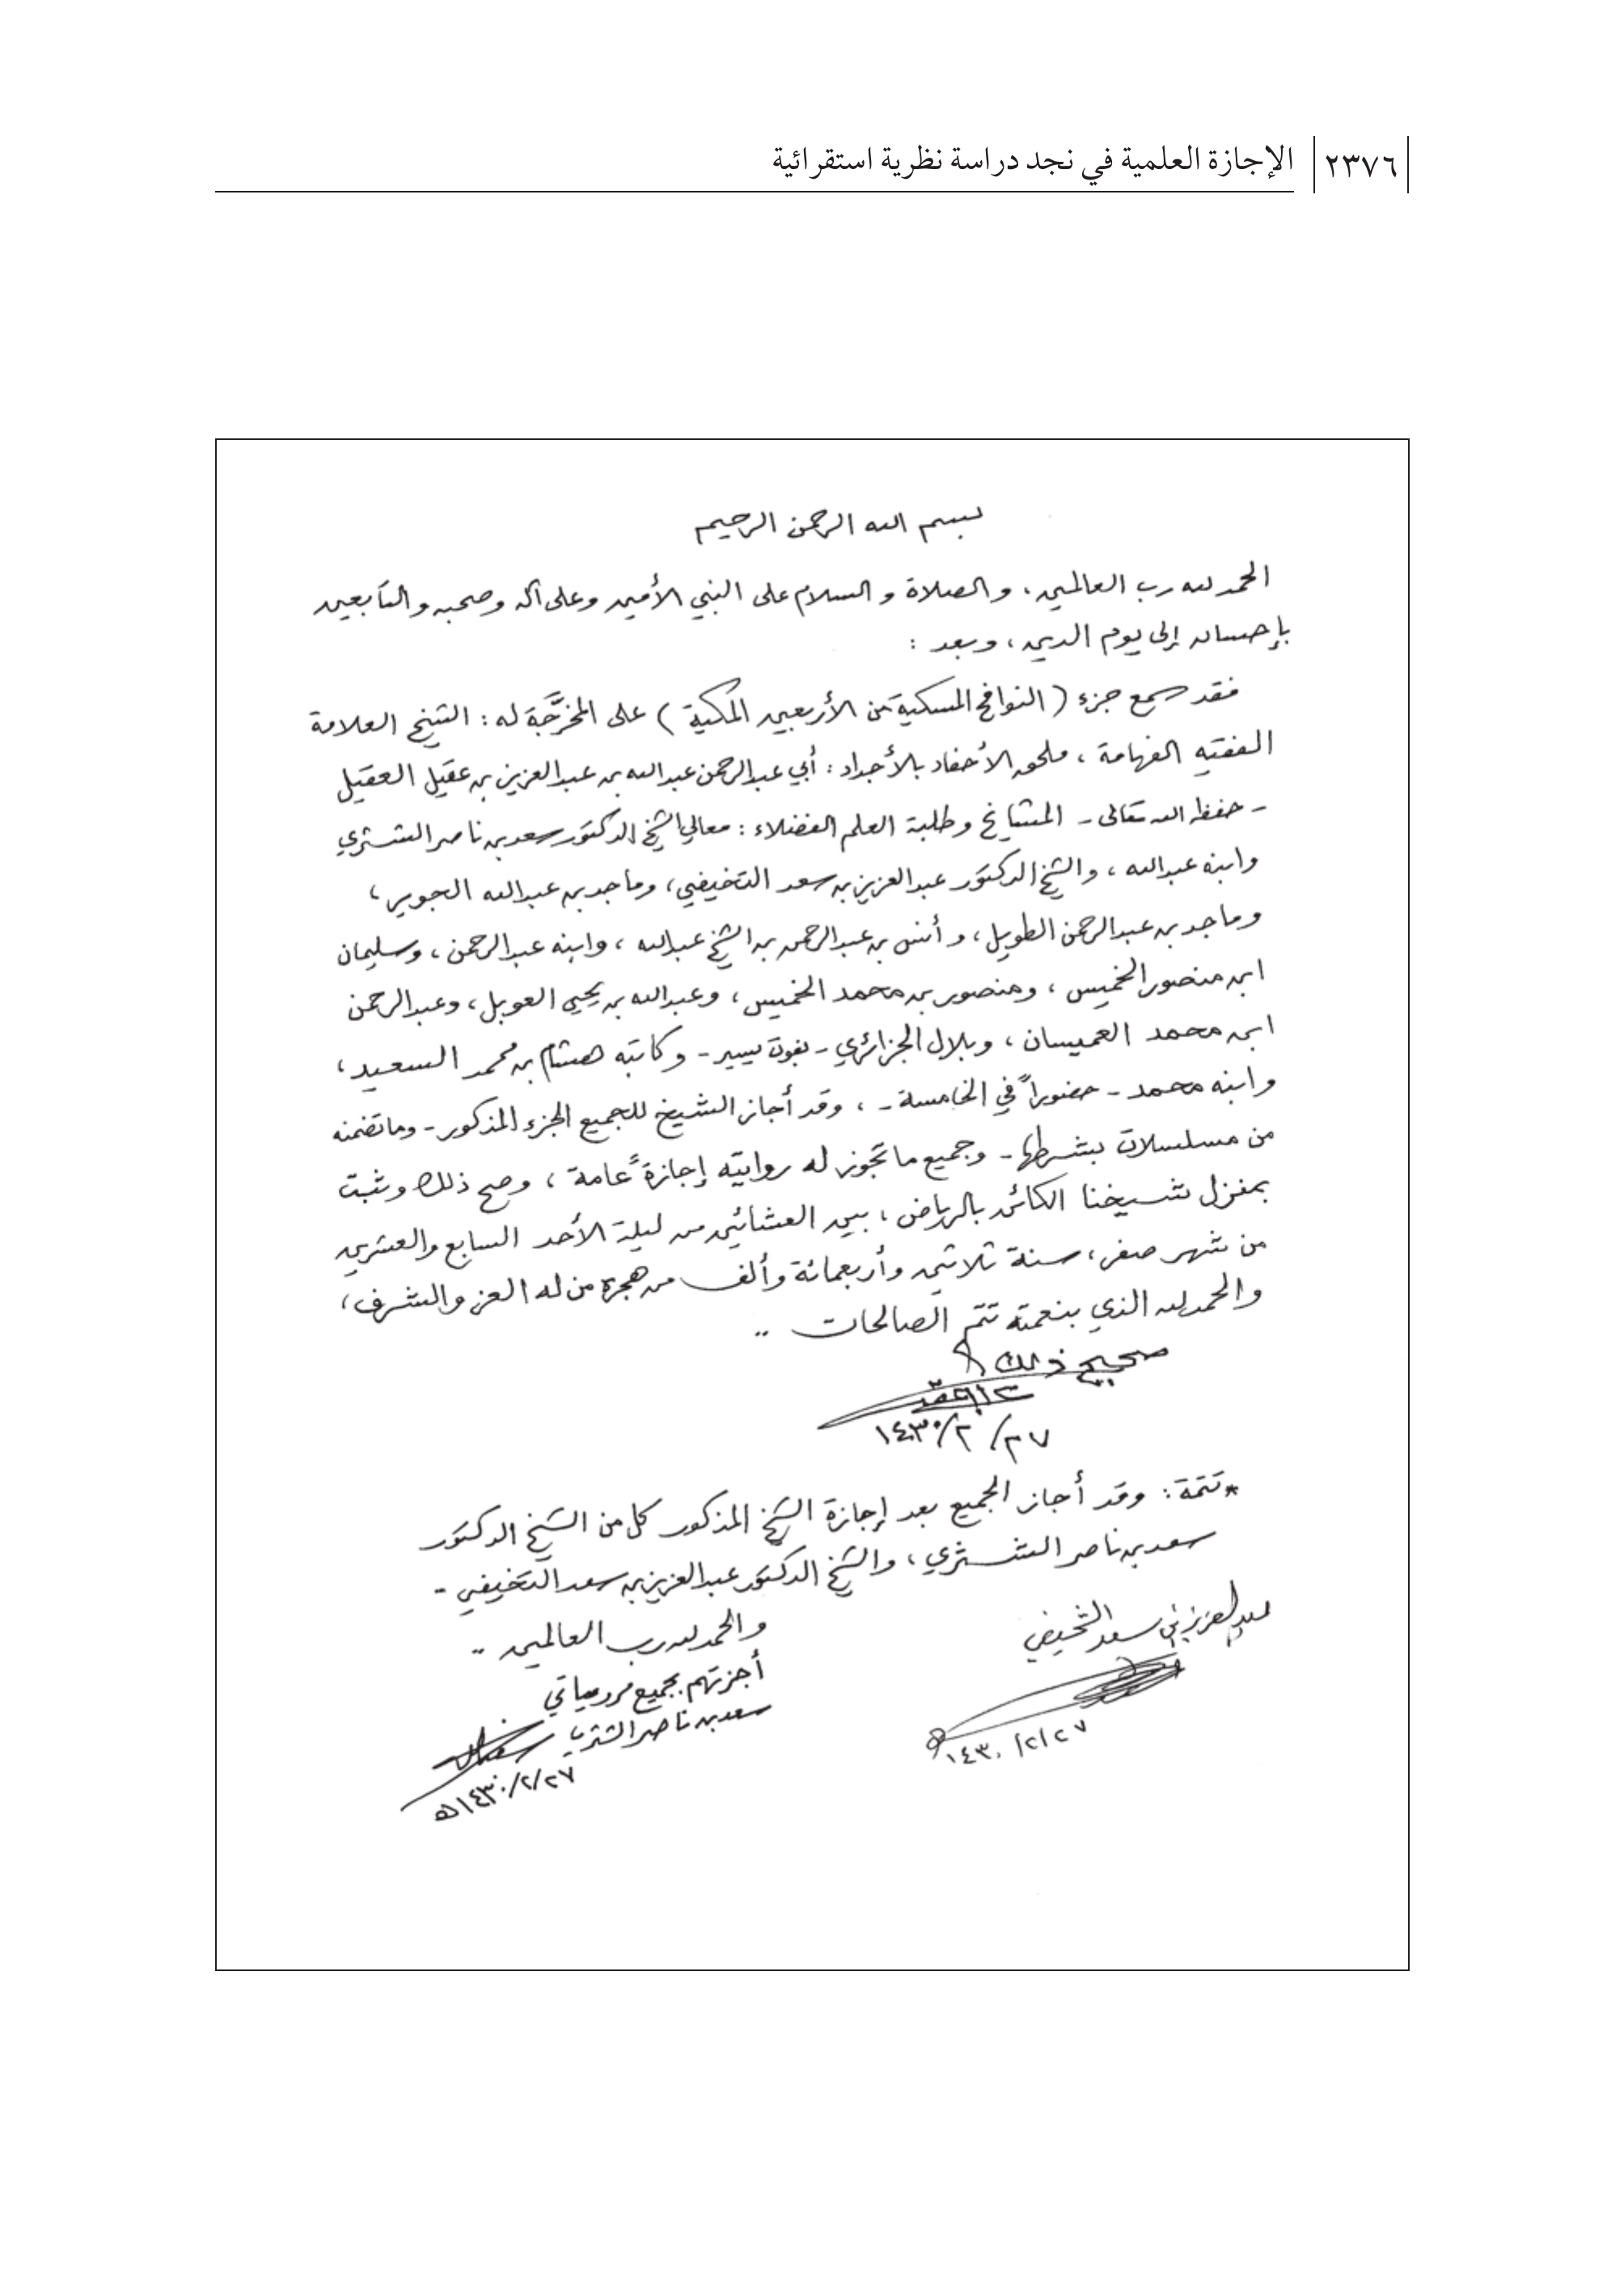 ٢٣٧٦ الإجازة العلمية في نجد دراسة نظرية استقرائية
بسم الله الرحمن الرحيم
الحمد لله رب العالمين، والصلاة والسلام على النبي الأمين وعلى آله وصحبه والتابعين
بإحسان إلى يوم الدين، وبعد :
فقد سمع جزء (النوافح المسكية من الأربعين المكية) على المخرَّجة له: الشيخ العلامة
الفقيه الفهامة، ملحق الأحفاد بالأجداد: أبي عبدالرحمن عبدالله بن عبدالعزيز بن عقيل العقيل
- حفظه الله تعالى - المشايخ وطلبة العلم الفضلاء: معالي الشيخ الدكتور سعد بن ناصر الشثري
وابنه عبدالله، والشيخ الدكتور عبدالعزيز بن سعد التخيفي، وماجد بن عبدالله الجوير،
وماجد بن عبدالرحمن الطويل، وأنس بن عبدالرحمن بن الشيخ عبدالله، وابنه عبدالرحمن، وسليمان
ابن منصور الخميس، ومنصور بن محمد الخميس، وعبدالله بن يحيى العوبل، وعبدالرحمن
ابن محمد العميسان، وبلال الجزائري - بفوت يسير - وكاتبه هشام بن محمد السعيد،
وابنه محمد - حضوراً في الخامسة -، وقد أجاز الشيخ للجميع الجزء المذكور - وما تضمنه
من مسلسلات بشرطها - وجميع ما تجوز له روايته إجازةً عامة، وصح ذلك وثبت
بمنزل شيخنا الكائن بالرياض، بين العشائين من ليلة الأحد السابع والعشرين
من شهر صفر، سنة ثلاثين وأربعمائة وألف من هجرة من له العز والشرف،
والحمد لله الذي بنعمته تتم الصالحات ..
صحيح ذلك
٢٧/٢/١٤٣٠
*تتمة: وقد أجاز الجميع بعد إجازة الشيخ المذكور كل من الشيخ الدكتور
سعد بن ناصر الشثري، والشيخ الدكتور عبدالعزيز بن سعد التخيفي -
والحمد لله رب العالمين ..
عبدالعزيز بن سعد التخيفي
١٤٣٠/٢/٢٧
أجزتهم بجميع مروياتي
سعد بن ناصر الشثري
١٤٣٠/٢/٢٧هـ